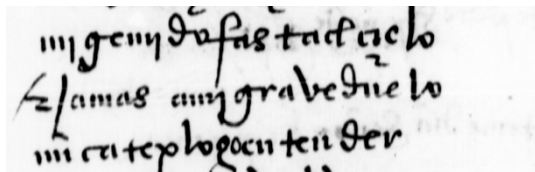 mi gemido fasta el cielo
& lamas ami graue duelo
mi catex logo entender